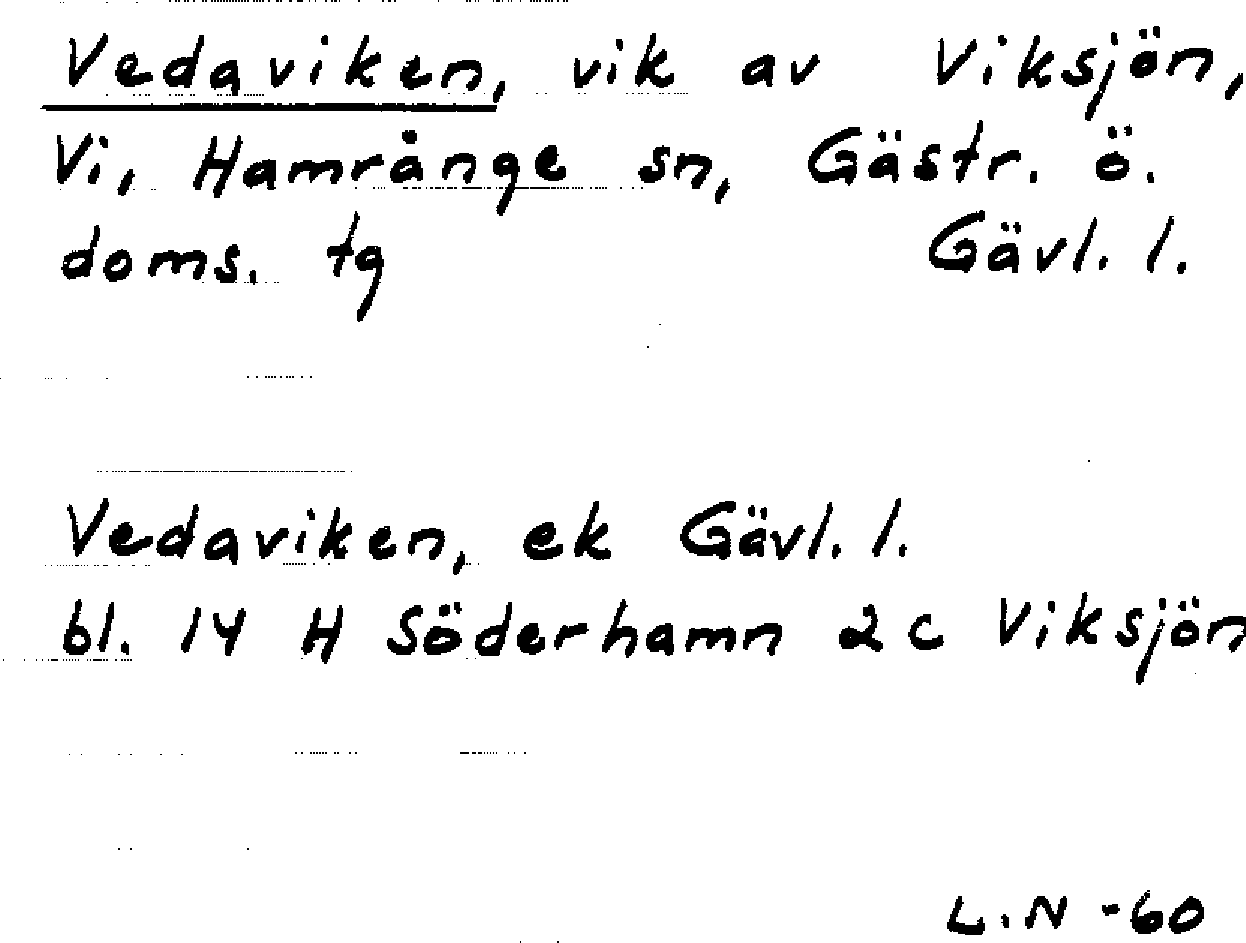 Vedaviken, vik av Viksjön,
Vi, Hamrånge sn, Gästr. ö.
doms. tg Gävl. l.
Vedaviken, ek Gävl. l.
bl. 14 H Söderhamn 2 c Viksjön
L.N -60